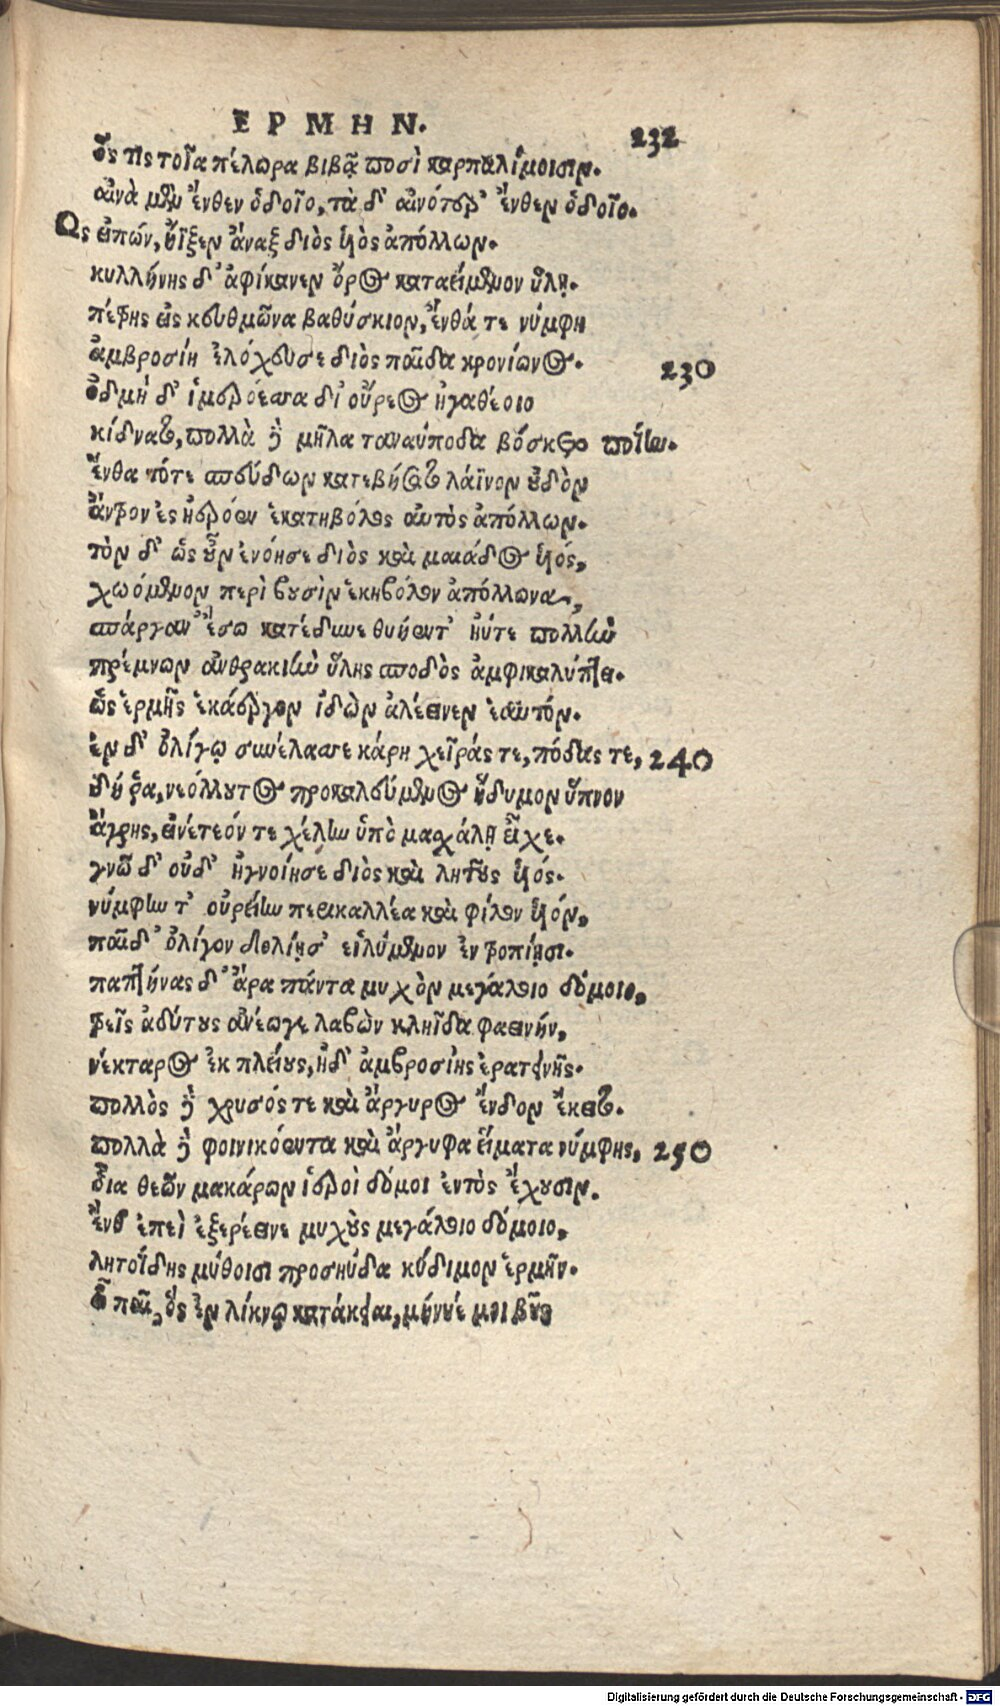 ΕΡΜΗΝ.
232
ὅς τις τοῖα πέλωρα βιβᾷ ποσὶ καρπαλίμοισιν.
αἰνὰ μὲν ἔνθεν ὁδοῖο, τὰ δ' αἰνότερ' ἔνθεν ὁδοῖο.
Ὣς εἰπών, ἤϊξεν ἄναξ διὸς υἱὸς ἀπόλλων.
κυλλήνης δ' ἀφίκανεν ὄρος καταείμενον ὕλῃ.
πέτρης εἰς κευθμῶνα βαθύσκιον, ἔνθά τε νύμφη
ἀμβροσίη ἐλόχευσε διὸς παῖδα κρονίωνος.
230
ὀδμὴ δ' ἱμερόεσσα δι' οὔρεος ἠγαθέοιο
κίδνατο, πολλὰ δὲ μῆλα ταναύποδα βόσκετο ποίην.
ἔνθα τότε σπεύδων κατεβήσατο λάϊνον οὐδὸν
ἄντρον ἐς ἠερόεν ἑκατηβόλος αὐτὸς ἀπόλλων.
τὸν δ' ὡς οὖν ἐνόησε διὸς καὶ μαιάδος υἱός,
χωόμενον περὶ βουσὶν ἑκηβόλον ἀπόλλωνα,
σπάργαν' ἔσω κατέδυνε θυήεντ' ἠύτε πολλὴν
πρέμνων ἀνθρακιὴν ὕλης σποδὸς ἀμφικαλύπτει.
ὣς ἑρμῆς ἑκάεργον ἰδὼν ἀλέεινεν ἑαυτόν.
ἐν δ' ὀλίγῳ συνέλασσε κάρη χεῖράς τε, πόδας τε,
240
δή ῥα, νεόλλουτος προκαλεύμενος ἥδυμον ὕπνον
ἄγρης, εἰνέτεόν τε χέλυν ὑπὸ μασχάλῃ εἶχε.
γνῶ δ' οὐδ' ἠγνοίησε διὸς καὶ λητοῦς υἱός.
νύμφην τ' οὐρείην περικαλλέα καὶ φίλον υἱόν,
παῖδ' ὀλίγον δολίῃσ' εἰλύμενον ἐντροπίῃσι.
παπτήνας δ' ἄρα πάντα μυχὸν μεγάλοιο δόμοιο,
τρεῖς ἀδύτους ἀνέωγε λαβὼν κληῖδα φαεινήν,
νέκταρος ἐκπλείους, ἠδ' ἀμβροσίης ἐρατεινῆς.
πολλὸς δὲ χρυσός τε καὶ ἄργυρος ἔνδον ἔκειτο.
πολλὰ δὲ φοινικόεντα καὶ ἄργυφα εἵματα νύμφης,
250
οἷα θεῶν μακάρων ἱεροὶ δόμοι ἐντὸς ἔχουσιν.
ἔνθ' ἐπεὶ ἐξερέεινε μυχοὺς μεγάλοιο δόμοιο,
λητοΐδης μύθοισι προσηύδα κύδιμον ἑρμῆν.
ὦ παῖ, ὃς ἐν λίκνῳ κατάκειαι, μήνυέ μοι βοῦς
Digitalisierung gefördert durch die Deutsche Forschungsgemeinschaft · DFG